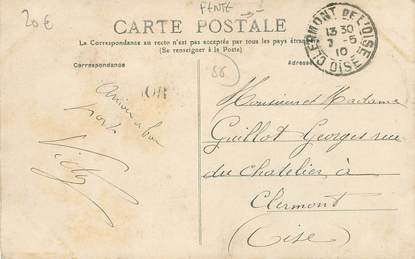 20€
FENTE
CARTE POSTALE
La Correspondance au recto n'est pas acceptée par tous les pays étrangers
(Se renseigner à la Poste)
Correspondance
Adresse
CLERMONT DE L'OISE
13 30
7-5
10
OISE
88
OR
port
Monsieur et Madame
Guillot Georges rue
du Chatelier à
Clermont
(Oise)